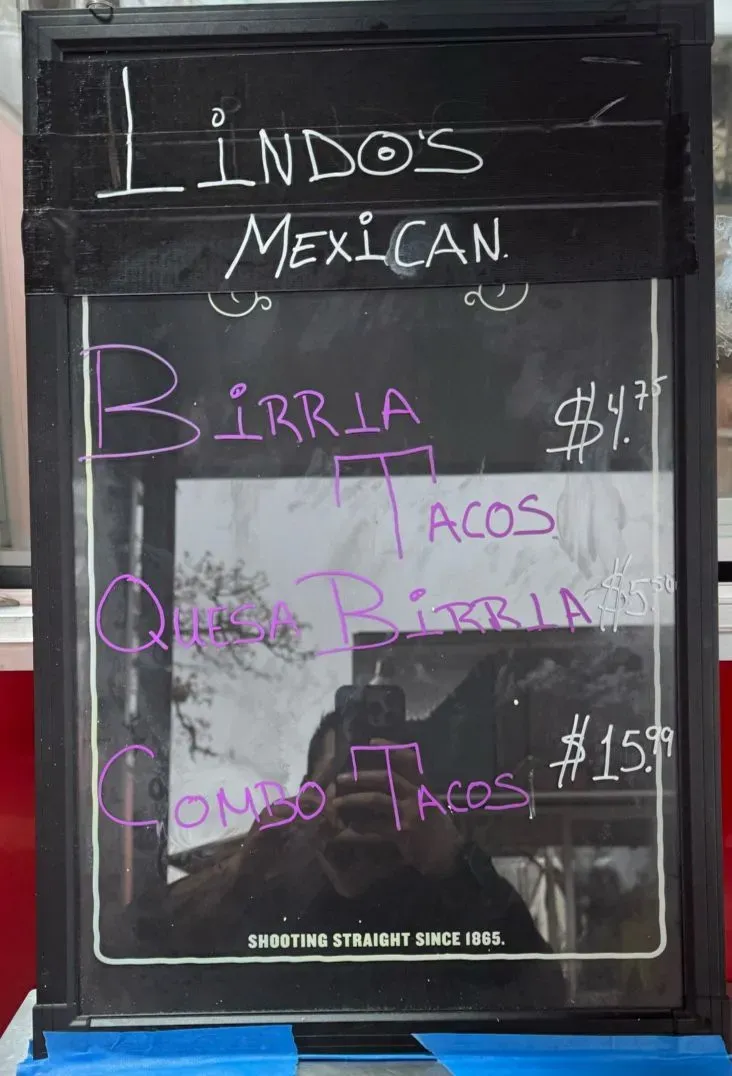 LiNDO'S
MEXiCAN.
BiRRIA $4.75
TACOS
QUESA BiRRIA $5.50
COMBO TACOS $15.99
SHOOTING STRAIGHT SINCE 1865.